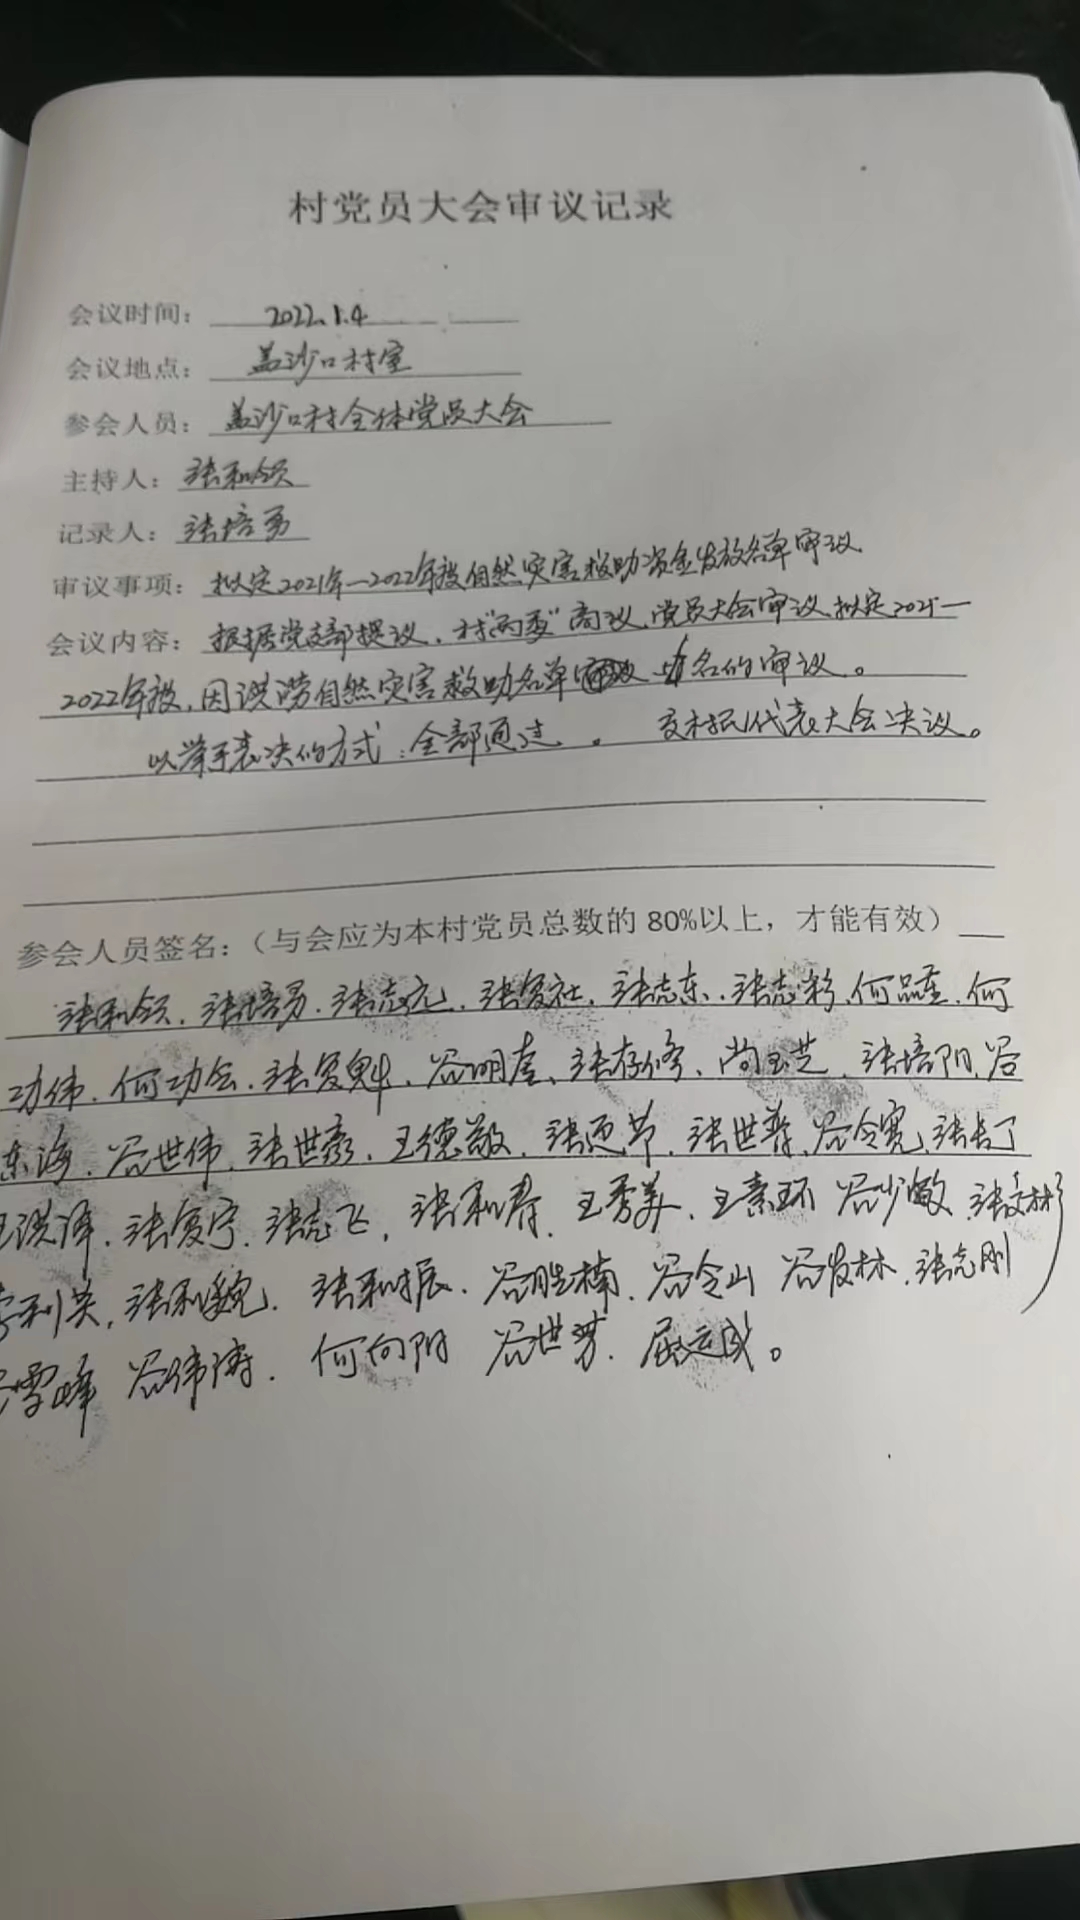 村党员大会审议记录
会议时间： 2022.1.4
会议地点： 盖沙口村室
参会人员： 盖沙口村全体党员大会
主持人： 张和领
记录人： 张培勇
审议事项： 拟定2021年—2022年度自然灾害救助资金发放名单审议
会议内容： 根据党支部提议，村“两委”商议，党员大会审议拟定2021—
2022年度，因洪涝自然灾害救助名单 名的审议。
以举手表决的方式：全部通过。 交村民代表大会决议。
参会人员签名：（与会应为本村党员总数的 80%以上，才能有效）
张和领、张培勇、张志元、张复社、张志东、张志彩、何品重、何
功伟、何功会、张复魁、谷明奎、张存修、尚玉芝、张培阳、谷
东海、谷世伟、张世豪、王德敬、张西节、张世普、谷令宽、张长丁
王洪泽、张复宁、张志飞、张和春、王秀美、王素环 谷少敏 张文彬
利英，张和魏、张和振、谷胜楠、谷令山 谷发林、张志刚
雪峰 谷伟涛、何向阳 谷世芳、屈运成。